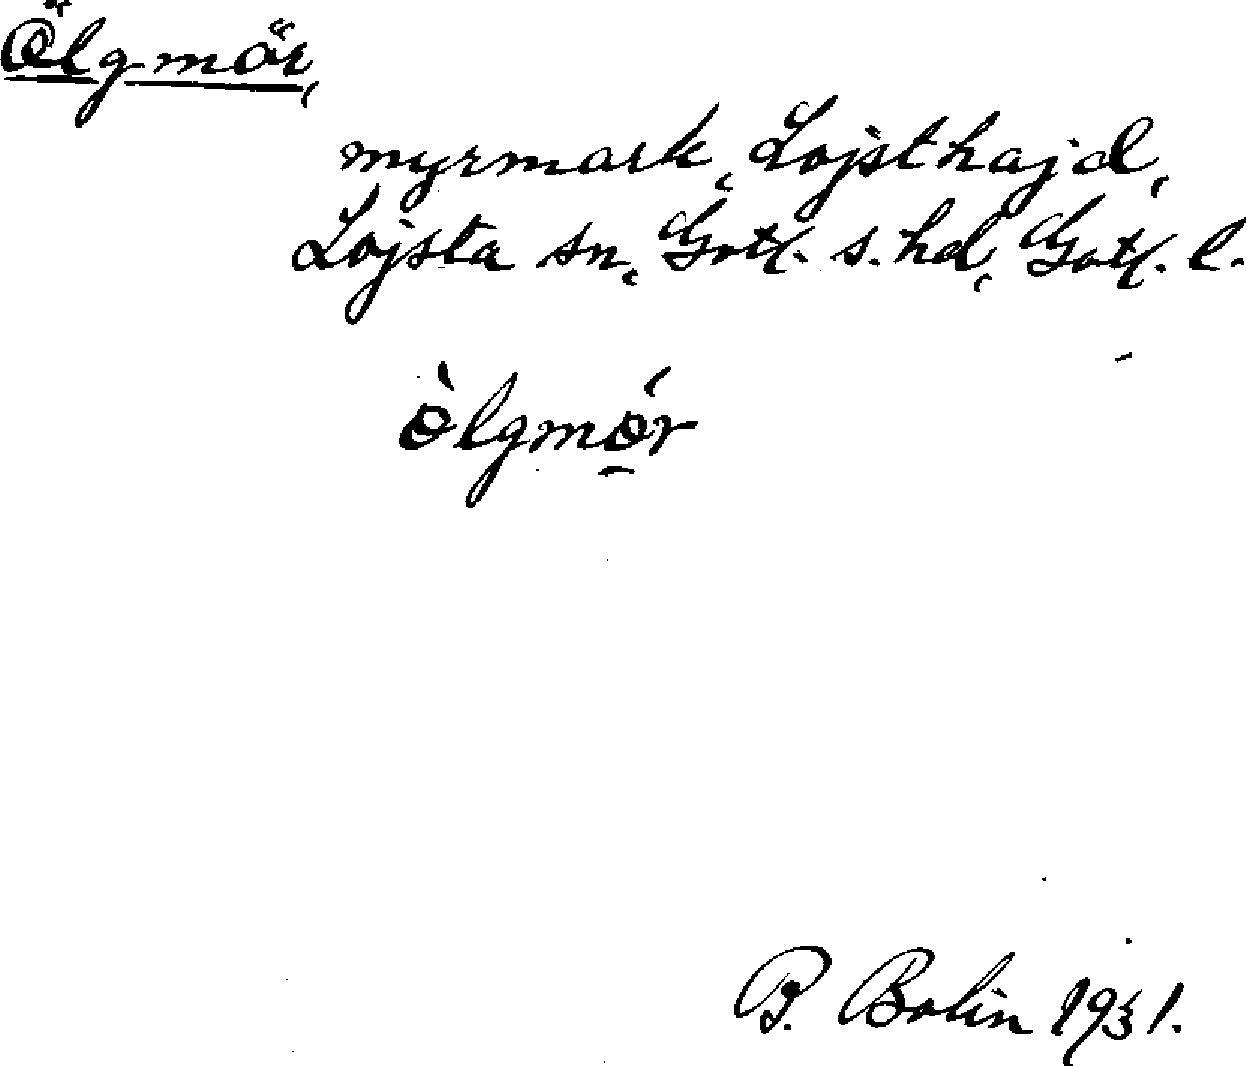 Ölgmör,
myrmark, Lojsthajd,
Lojsta sn, Gotl. s. hd, Gotl. l.
òlgmǿ̠r
B. Bolin 1931.